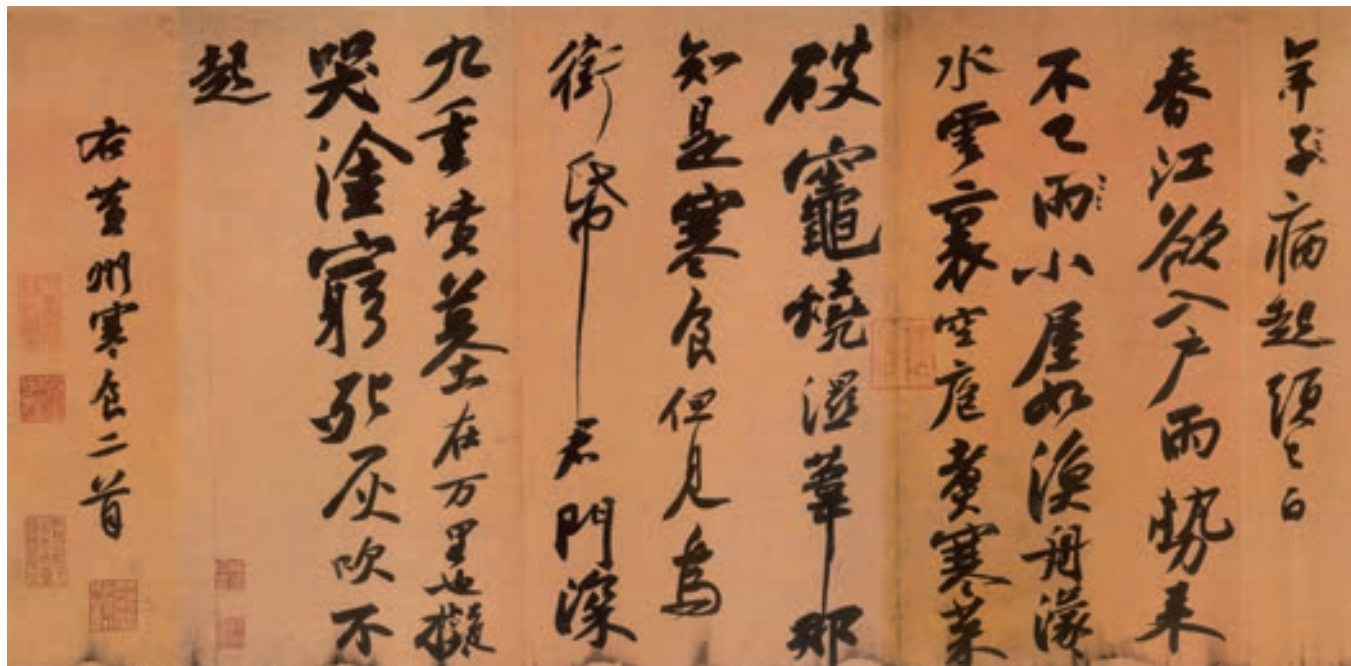 年子病起頭已白
春江欲入戶雨勢来
不已雨小屋如漁舟濛〻
水雲裏空庖煮寒菜
破竈燒濕葦那
知是寒食但見烏
銜帋君門深
九重墳墓在万里也擬
哭塗窮死灰吹不
起
右黄州寒食二首